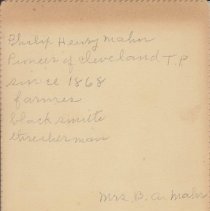 Philip Henry Mahn
Pioneer of Cleveland T.P
since 1868
farmer
blacksmith
thresherman
Mrs. B. A. Mahn